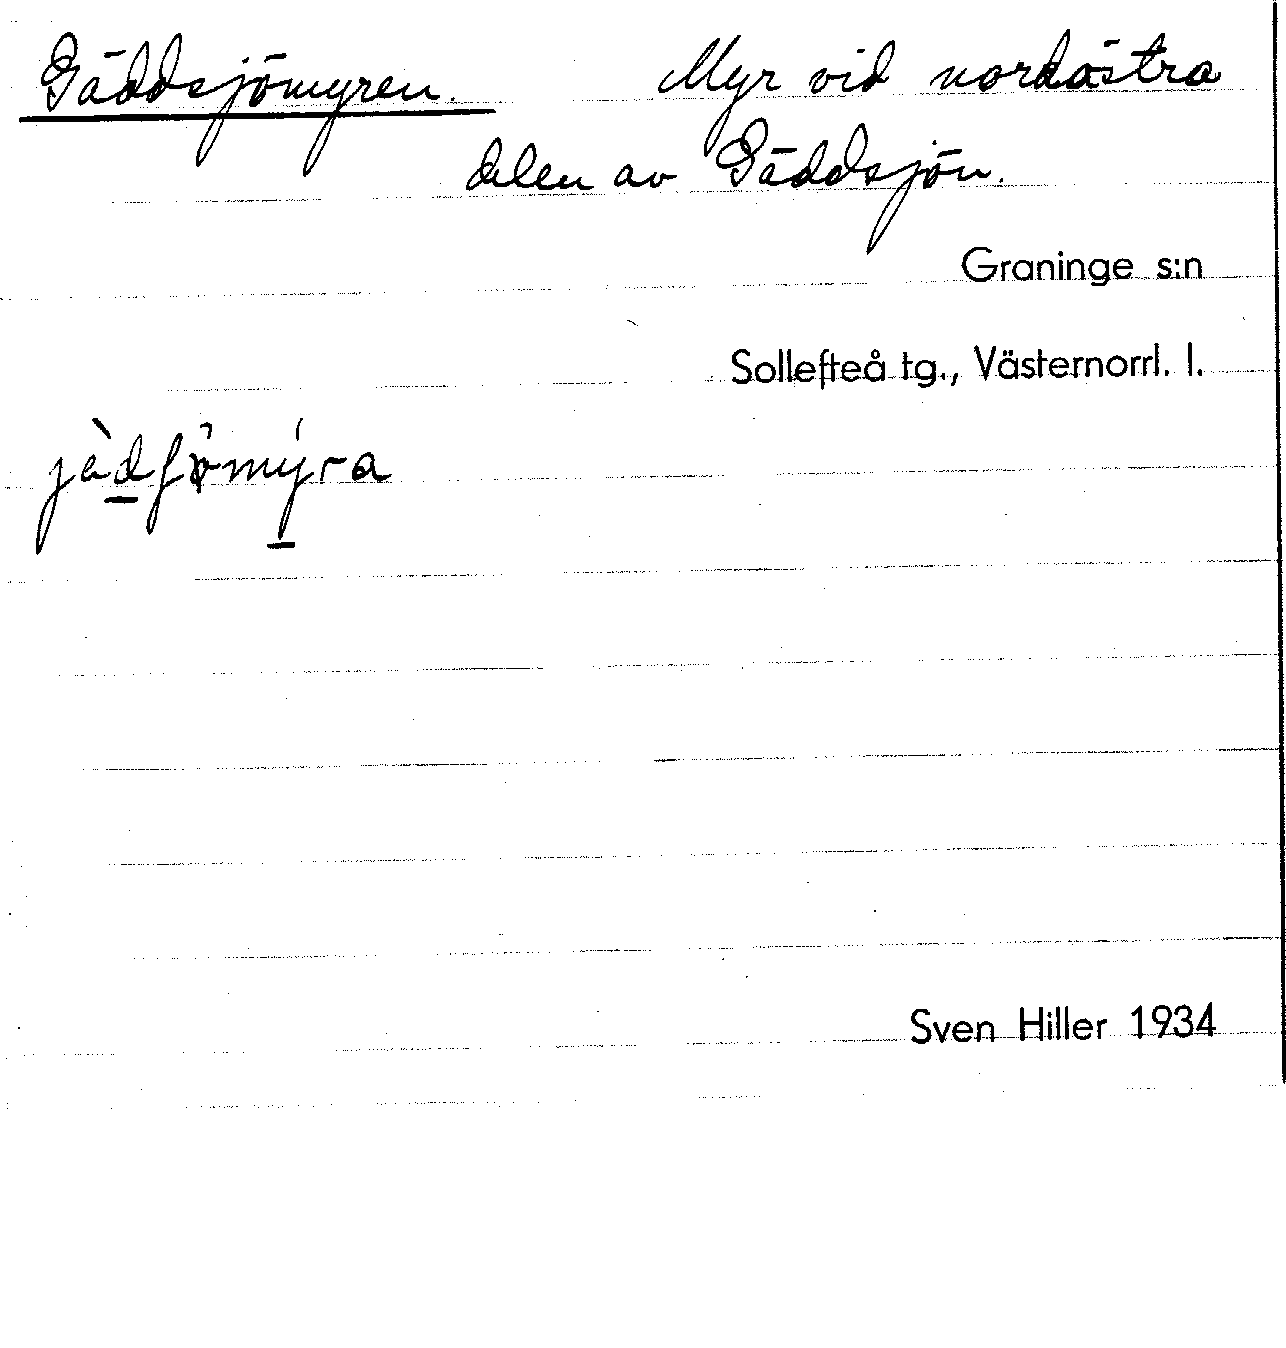 Gäddsjömyren. Myr vid nordöstra
delen av Gäddsjön.
Graninge s:n
Sollefteå tg., Västernorrl. l.
Sven Hiller 1934